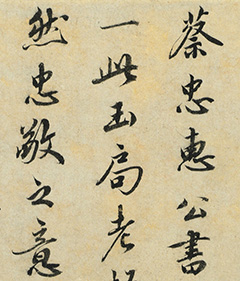 蔡忠惠公書
一此玉局老
然忠敬之意